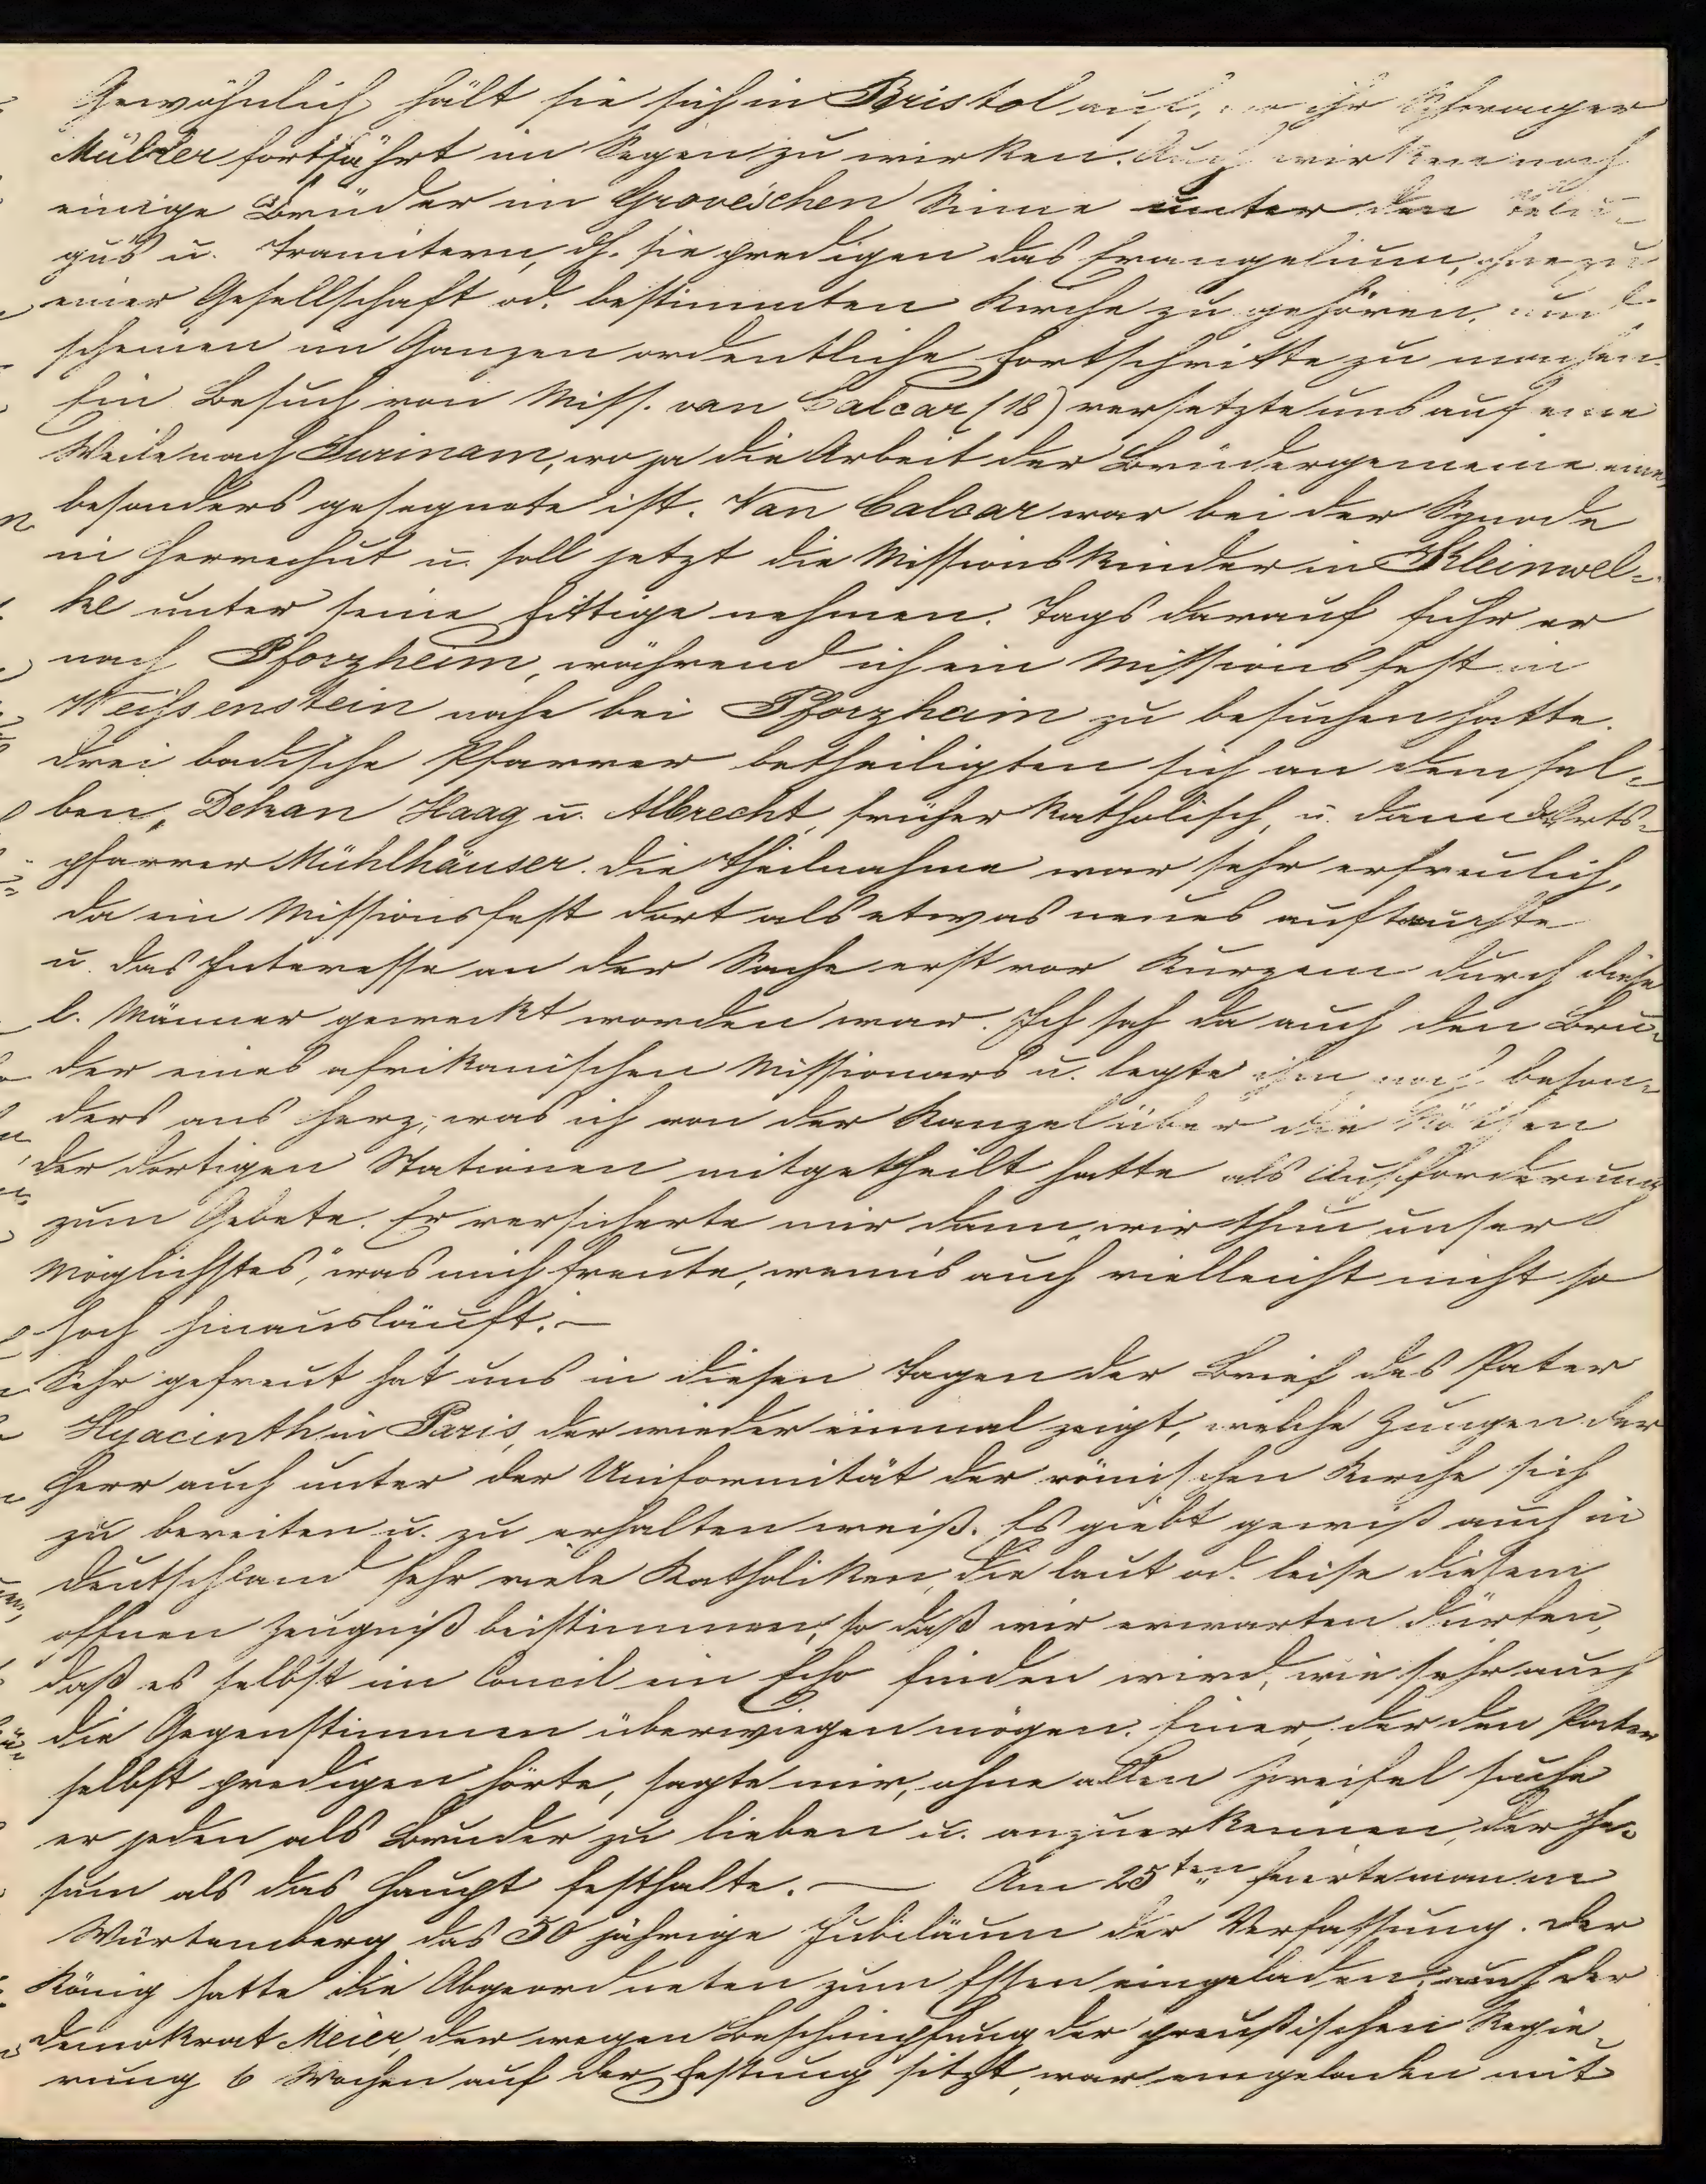 Gewöhnlich hält sie sich in Bristol auf, wo ihr Schwager
Müller fortfährt im Segen zu wirken. Auch wirken noch
einige Brüder im Groves'schen Sinne unter den Telu-
gus u. Tamilern, dh. sie predigen das Evangelium, ohne zu
einer Gesellschaft od. bestimmten Kirche zu gehören, und
scheinen im Ganzen ordentliche Fortschritte zu machen.
Ein Besuch von Miss. van Calcar (18) versetzte uns auf eine
Weile nach Surinam, wo ja die Arbeit der Brüdergemeine eine
besonders gesegnete ist. Van Calcar war bei der Synode
in Herrnhut u. soll jetzt die Missionskinder in Kleinwel-
ke unter seine Fittige nehmen. Tags darauf fuhr er
nach Pforzheim, während ich ein Missionsfest in
Weissenstein nahe bei Pforzheim zu besuchen hatte.
Drei badische Pfarrer betheiligten sich an demsel-
ben, Dekan Haag u. Albrecht, früher katholisch, u. dann d. Orts-
pfarrer Mühlhäuser. Die Theilnahme war sehr erfreulich,
da ein Missionsfest dort als etwas neues auftauchte
u. das Interesse an der Sache erst vor Kurzem durch diese
l. Männer geweckt worden war. Ich sah da auch den Bru-
der eines afrikanischen Missionars u. legte ihm noch beson-
ders ans Herz, was ich von der Kanzel über die Nöthen
der dortigen Stationen mitgetheilt hatte als Aufforderung
zum Gebete. Er versicherte mir dann „wir thun unser
Möglichstes", was mich freute, wenn's auch vielleicht nicht so
hoch hinausläuft. —
Sehr gefreut hat uns in diesen Tagen der Brief des Pater
Hyacinth in Paris, der wieder einmal zeigt, welche Zungen der
Herr auch unter der Uniformität der römischen Kirche sich
zu bereiten u. zu erhalten weiß. Es giebt gewiß auch in
Deutschland sehr viele Katholiken, die laut od. leise diesem
offnen Zeugniß beistimmen, so daß wir erwarten dürfen,
daß es selbst im Concil ein Echo finden wird, wie sehr auch
die Gegenstimmen überwiegen mögen. Einer, der den Pater
selbst predigen hörte, sagte mir, ohne allen Zweifel suche
er jeden als Bruder zu lieben u. anzuerkennen, der Je-
sum als das Haupt festhalte. — Am 25ten feierte man in
Würtemberg das 50 jährige Jubiläum der Verfassung. Der
König hatte die Abgeordneten zum Essen eingeladen; auch der
Demokrat Meier, der wegen Beschimpfung der preußischen Regie-
rung 6 Wochen auf der Festung sitzt, war eingeladen mit